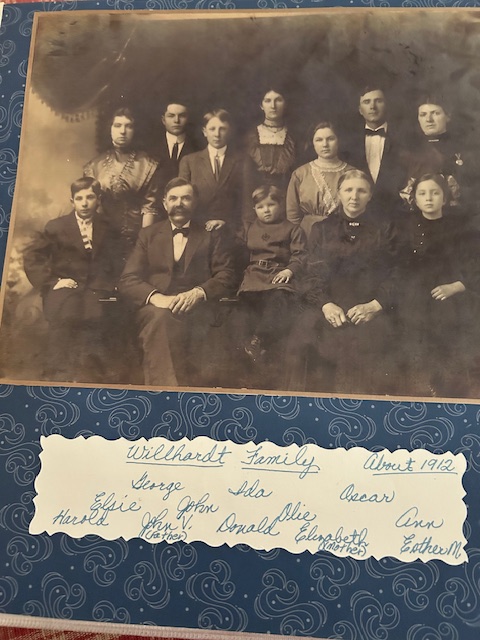 Willhardt Family About 1912
George Ida Oscar
Elsie John Olie Ann
Harold John V. Donald Elizabeth Esther M.
(Father) (Mother)